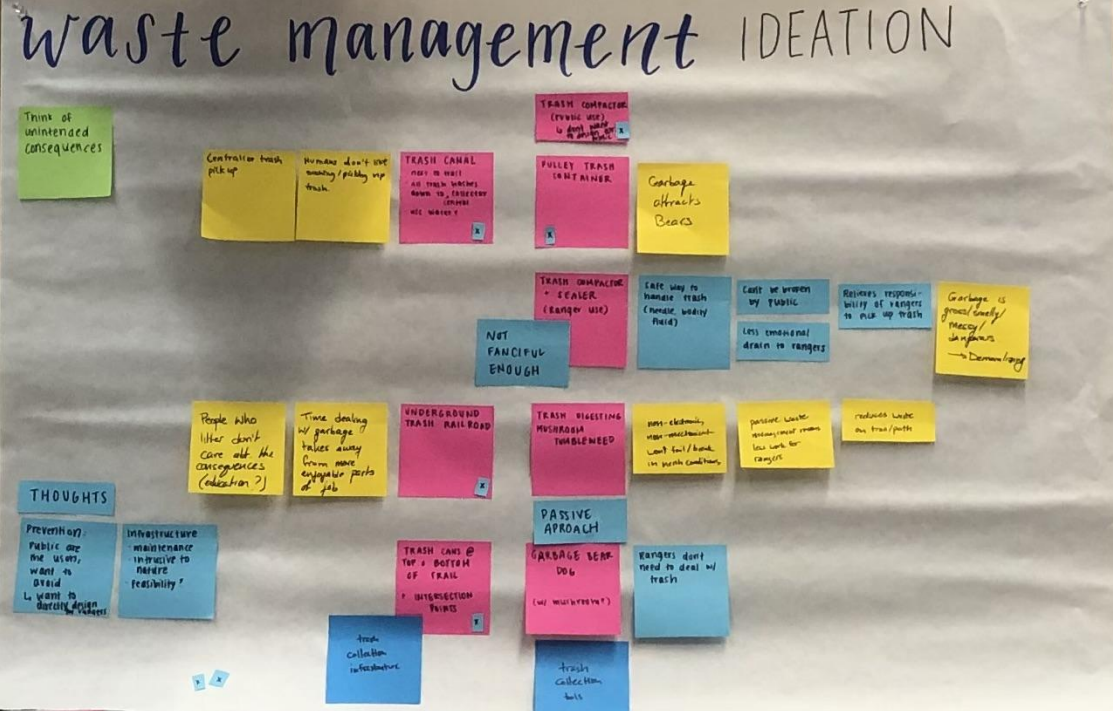 waste management IDEATION
Think of
unintended
consequences
TRASH COMPACTOR
(PUBLIC USE)
↳ don't want
to design for
public
x
Centralize trash
pick up
Humans don't like
touching/picking up
trash
TRASH CANAL
next to trail
all trash washes
down to collector
central
use water?
x
PULLEY TRASH
CONTAINER
x
Garbage
attracts
Bears
TRASH COMPACTOR
+ SEALER
(Ranger use)
NOT
FANCIFUL
ENOUGH
Safe way to
handle trash
(needle, bodily
fluid)
Can't be broken
by public
Less emotional
drain to rangers
Relieves responsi-
bility of rangers
to pick up trash
Garbage is
gross/smelly/
messy/
dangerous
→ Demoralizing
People who
litter don't
care abt the
consequences
(education?)
Time dealing
w/ garbage
takes away
from more
enjoyable parts
of job
UNDERGROUND
TRASH RAILROAD
x
TRASH DIGESTING
MUSHROOM
TUMBLEWEED
non-electronic,
non-mechanical
wont fail/break
in conditions
passive waste
management means
less work for
rangers
reduces waste
on trail/path
THOUGHTS
Prevention:
Public are
the users,
want to
avoid
↳ want to
directly design
for rangers
Infrastructure
- maintenance
- intrusive to
nature
- feasibility?
PASSIVE
APROACH
TRASH CANS @
TOP & BOTTOM
OF TRAIL
+ INTERSECTION
POINTS
x
GARBAGE BEAR
DOG
(w/ mushroom?)
Rangers dont
need to deal w/
trash
trash
collection
infrastructure
trash
collection
tools
x x